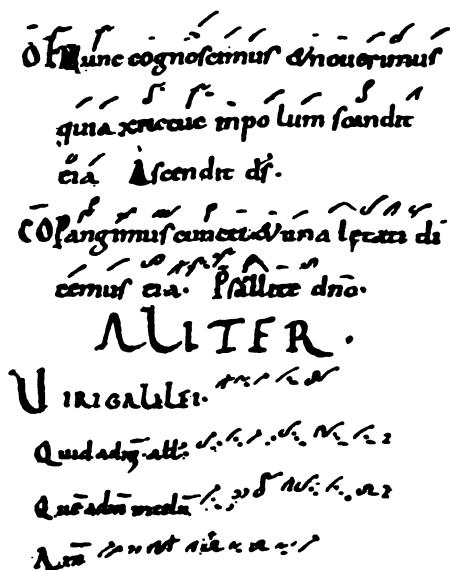 OF Nunc cognoscimus & nouerimus
quia in polum scandit
eia Ascendit ds̄.
CŌ Pangimus cuncti & una lętati di
cemus eia. Psallite dn̄o.
ALITER.
VIRI GALILEI.
Quid adm̄ all
Quē adm̄